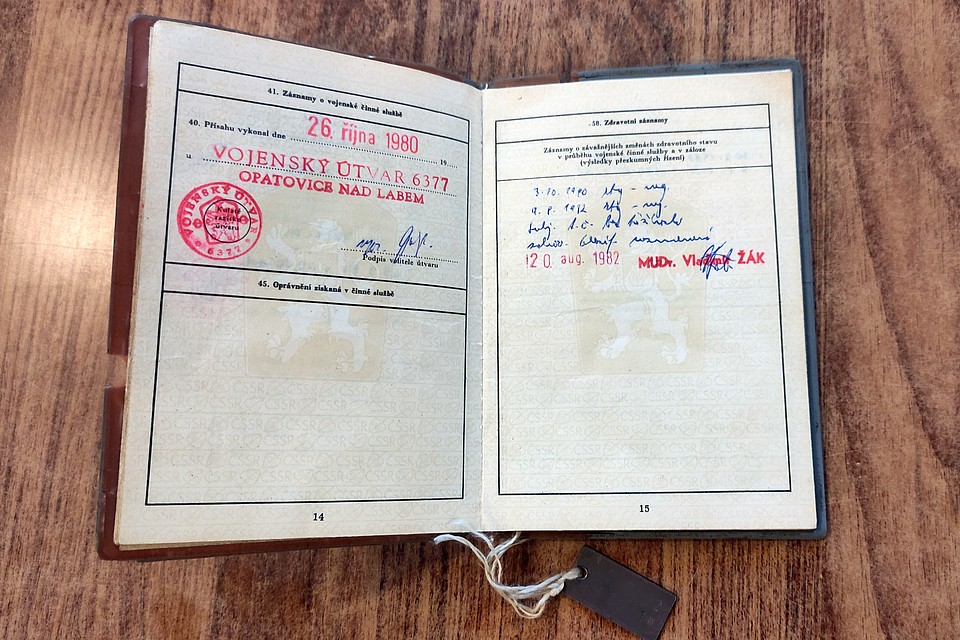 41. Záznamy o vojenské činné službě
40. Přísahu vykonal dne 26. října 1980 19
u VOJENSKÝ ÚTVAR 6377
OPATOVICE NAD LABEM
VOJENSKÝ ÚTVAR
Kulaté
razítko
útvaru
6377
Podpis velitele útvaru
45. Oprávnění získaná v činné službě
14
58. Zdravotní záznamy
Záznamy o závažnějších změnách zdravotního stavu
v průběhu vojenské činné služby a v záloze
(výsledky přezkumných řízení)
3. 10. 1980
9. 8. 1982
subj.
20. aug. 1982 MUDr. Vladimír ŽÁK
ČSSR
15